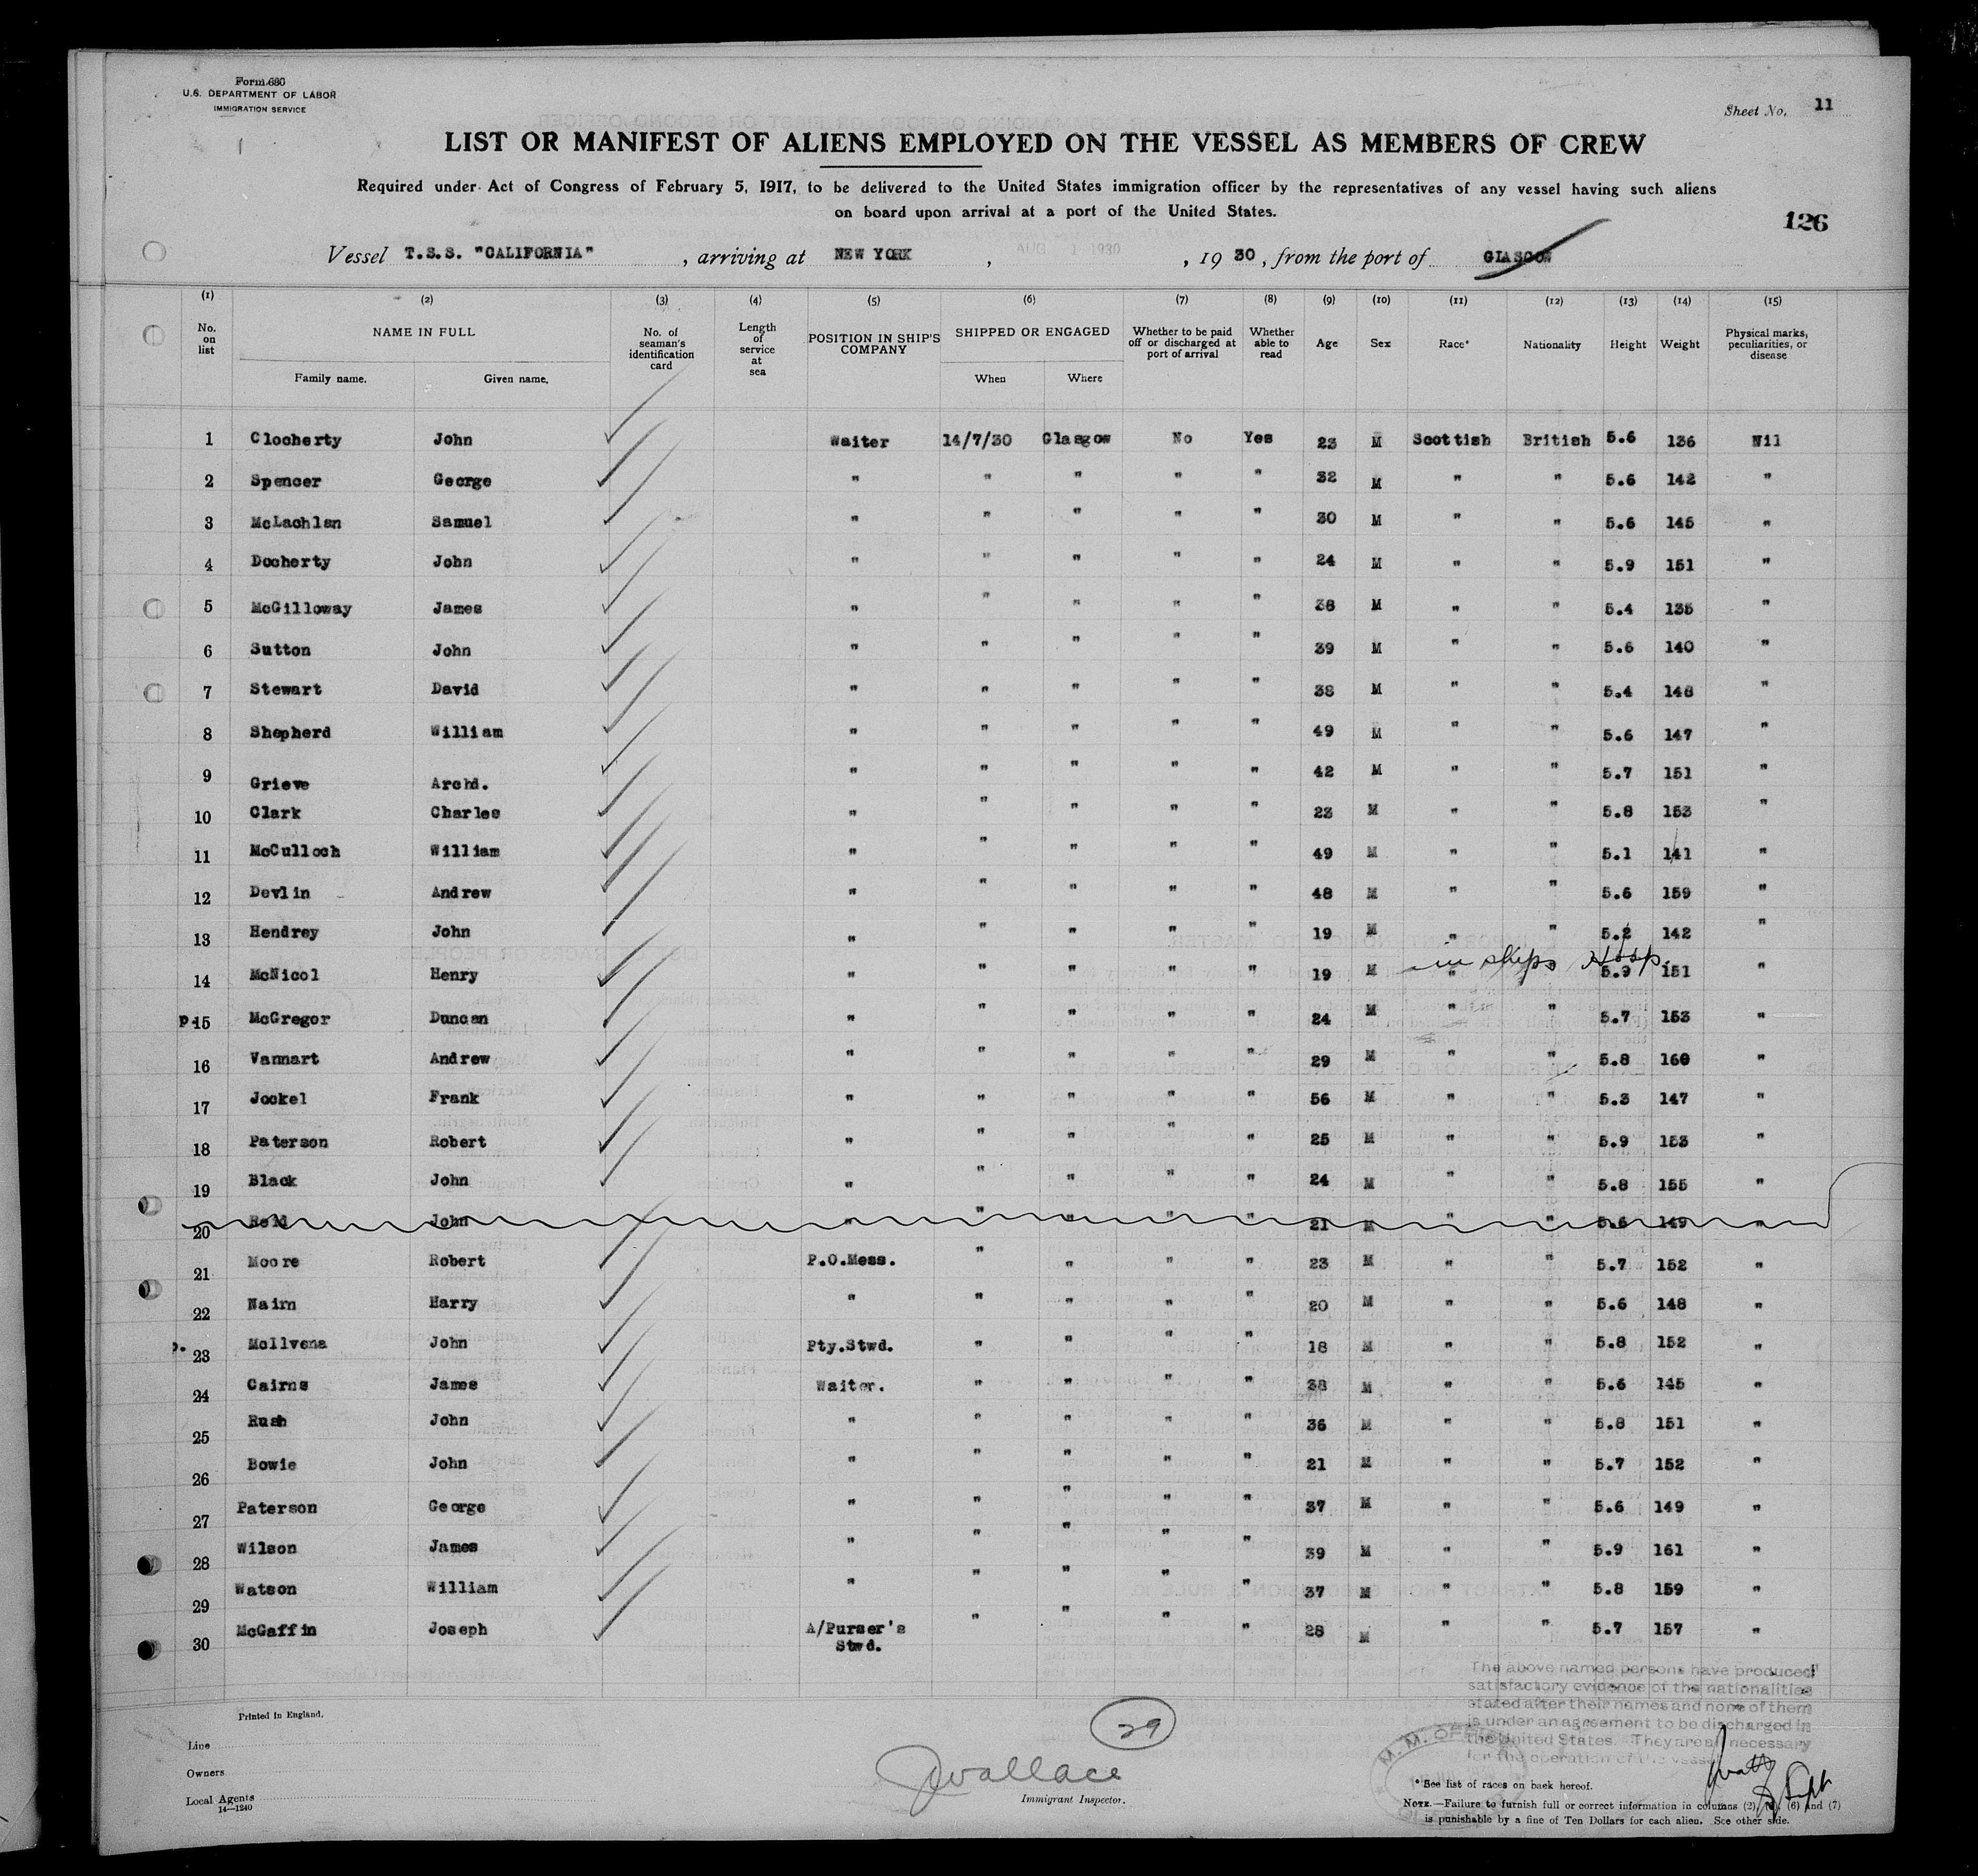 Form 680
U.S. DEPARTMENT OF LABOR
IMMIGRATION SERVICE
Sheet No. 11
LIST OR MANIFEST OF ALIENS EMPLOYED ON THE VESSEL AS MEMBERS OF CREW
Required under Act of Congress of February 5, 1917, to be delivered to the United States immigration officer by the representatives of any vessel having such aliens
on board upon arrival at a port of the United States.
126
Vessel T.S.S. "CALIFORNIA" , arriving at NEW YORK , AUG 1 1930 , 19 30 , from the port of GLASGOW
(1) (2) (3) (4) (5) (6) (7) (8) (9) (10) (11) (12) (13) (14) (15)
No. on list NAME IN FULL Family name. Given name. No. of seaman's identification card Length of service at sea POSITION IN SHIP'S COMPANY SHIPPED OR ENGAGED When Where Whether to be paid off or discharged at port of arrival Whether able to read Age Sex Race* Nationality Height Weight Physical marks, peculiarities, or disease
1 Clocherty John Waiter 14/7/30 Glasgow No Yes 23 M Scottish British 5.6 136 Nil
2 Spencer George " " " " " 32 M " " 5.6 142 "
3 McLachlan Samuel " " " " " 30 M " " 5.6 145 "
4 Docherty John " " " " " 24 M " " 5.9 151 "
5 McGilloway James " " " " " 38 M " " 5.4 135 "
6 Sutton John " " " " " 39 M " " 5.6 140 "
7 Stewart David " " " " " 38 M " " 5.4 148 "
8 Shepherd William " " " " " 49 M " " 5.6 147 "
9 Grieve Archd. " " " " " 42 M " " 5.7 151 "
10 Clark Charles " " " " " 23 M " " 5.8 153 "
11 McCulloch William " " " " " 49 M " " 5.1 141 "
12 Devlin Andrew " " " " " 48 M " " 5.6 159 "
13 Hendrey John " " " " " 19 M " " 5.2 142 "
in ships Hosp.
14 McNicol Henry " " " " " 19 M " " 5.9 151 "
P.15 McGregor Duncan " " " " " 24 M " " 5.7 153 "
16 Vannart Andrew " " " " " 29 M " " 5.8 160 "
17 Jockel Frank " " " " " 56 M " " 5.3 147 "
18 Paterson Robert " " " " " 25 M " " 5.9 153 "
19 Black John " " " " " 24 M " " 5.8 155 "
20 Reid John " " " " " 21 M " " 5.6 149 "
21 Moore Robert P.O.Mess. " " " " 23 M " " 5.7 152 "
22 Nairn Harry " " " " " 20 M " " 5.6 148 "
P. 23 McIlvena John Pty.Stwd. " " " " 18 M " " 5.8 152 "
24 Cairns James Waiter. " " " " 38 M " " 5.6 145 "
25 Rush John " " " " " 36 M " " 5.8 151 "
26 Bowie John " " " " " 21 M " " 5.7 152 "
27 Paterson George " " " " " 37 M " " 5.6 149 "
28 Wilson James " " " " " 39 M " " 5.9 161 "
29 Watson William " " " " " 37 M " " 5.8 159 "
30 McGaffin Joseph A/Purser's Stwd. " " " " 28 M " " 5.7 157 "
The above named persons have produced
satisfactory evidence of the nationalities
stated after their names and none of them
is under an agreement to be discharged in
the United States. They are all necessary
for the operation of the vessel
Printed in England.
29
Line
Owners
Local Agents
14—1240
JWallace
Immigrant Inspector.
M. M. OFFICE
* See list of races on back hereof.
NOTE.—Failure to furnish full or correct information in columns (2), (6) and (7)
is punishable by a fine of Ten Dollars for each alien. See other side.